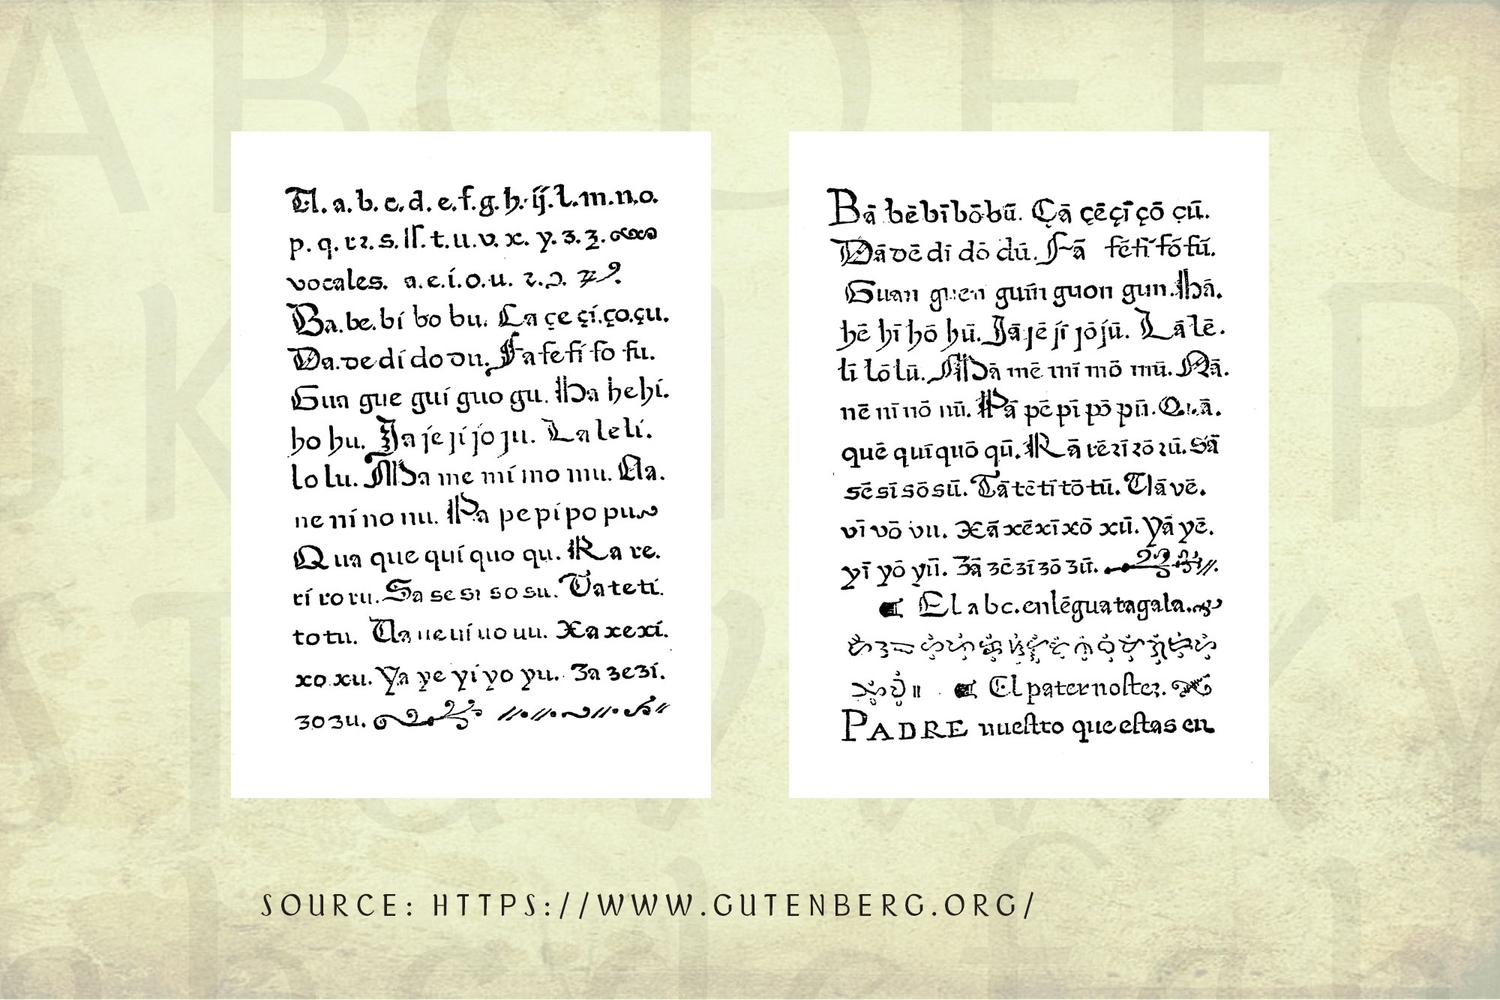 A. a. b. c. d. e. f. g. h. ij. l. m. n. o.
p. q. r ꝛ. s. ſſ. t. u. v. x. y. 3. ʒ.
vocales. a. e. í. o. u.
Ba. be. bí bo bu. Ca çe çí. ço. çu.
Da. de dí do du. Fa fe fí fo fu.
Gua gue guí guo gu. Ha he hí.
ho hu. Ja je jí jo ju. La le lí.
lo lu. Ma me mí mo mu. Na.
ne ní no nu. Pa pe pí po pu
Qua que quí quo qu. Ra re.
rí ro ru. Sa se sı so su. Ta te tí.
to tu. Ua ue uí uo uu. Xa xe xí.
xo xu. Ya ye yí yo yu. 3a 3e 3í.
3o 3u.
Bā bē bī bō bū. Çā çē çī çō çū.
Dā dē dī dō dū. Fā fē fī fō fū.
Guan guen guin guon gun. Hā.
hē hī hō hū. Jā jē jī jō jū. Lā lē.
lī lō lū. Mā mē mī mō mū. Nā.
nē nī nō nū. Pā pē pī pō pū. Quā.
quē quī quō qū. Rā rē rī rō rū. Sā
sē sī sō sū. Tā tē tī tō tū. Uā vē.
vī vō vu. Xā xē xī xō xū. Yā yē.
yī yō yū. 3ā 3ē 3ī 3ō 3ū.
El a b c. en lēgua tagala.
El pater noſter.
PADRE nueſtro que eſtas en
SOURCE: HTTPS://WWW.GUTENBERG.ORG/